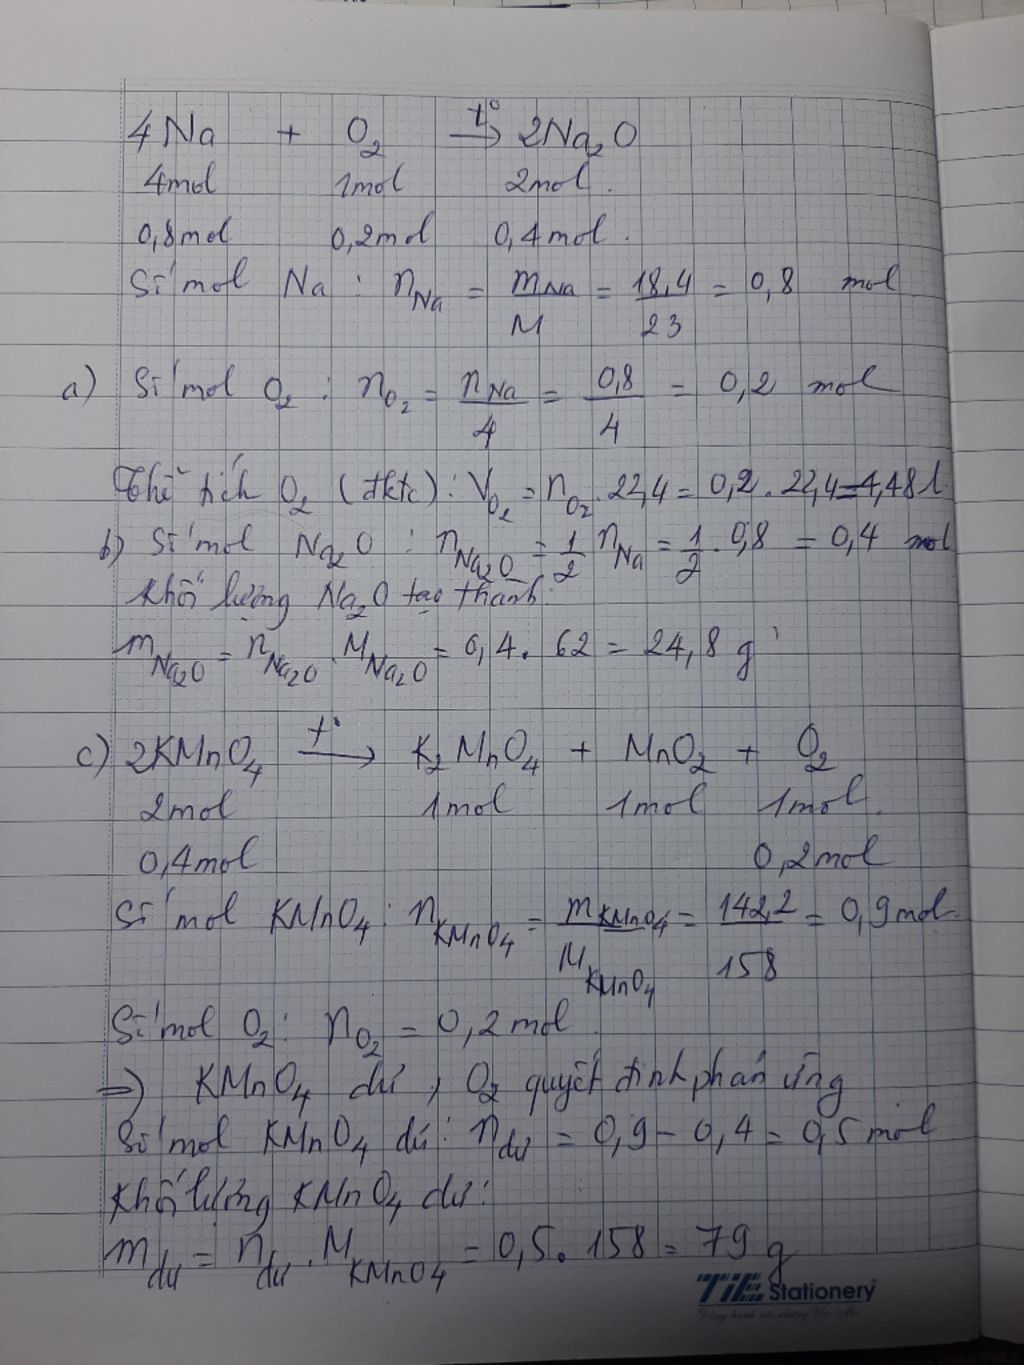 4Na + O₂ →t° 2Na₂O
4mol 1mol 2mol.
0,8mol 0,2mol 0,4mol.
Số mol Na : n_Na = m_Na/M = 18,4/23 = 0,8 mol
a) Số mol O₂ : n_O₂ = n_Na/4 = 0,8/4 = 0,2 mol
Thể tích O₂ (đktc) : V_O₂ = n_O₂.22,4 = 0,2.22,4=4,48l
b) Số mol Na₂O : n_Na₂O = 1/2 n_Na = 1/2 . 0,8 = 0,4 mol
Khối lượng Na₂O tạo thành:
m_Na₂O = n_Na₂O . M_Na₂O = 0,4. 62 = 24,8 g
c) 2KMnO₄ →t° K₂MnO₄ + MnO₂ + O₂
2mol 1mol 1mol 1mol.
0,4mol 0,2mol
Số mol KMnO₄ : n_KMnO₄ = m_KMnO₄/M_KMnO₄ = 142,2/158 = 0,9mol
Số mol O₂ : n_O₂ = 0,2mol
=> KMnO₄ dư , O₂ quyết định phản ứng
Số mol KMnO₄ dư : n_dư = 0,9 - 0,4 = 0,5mol
Khối lượng KMnO₄ dư:
m_dư = n_dư . M_KMnO₄ = 0,5. 158 = 79 g
TiE Stationery